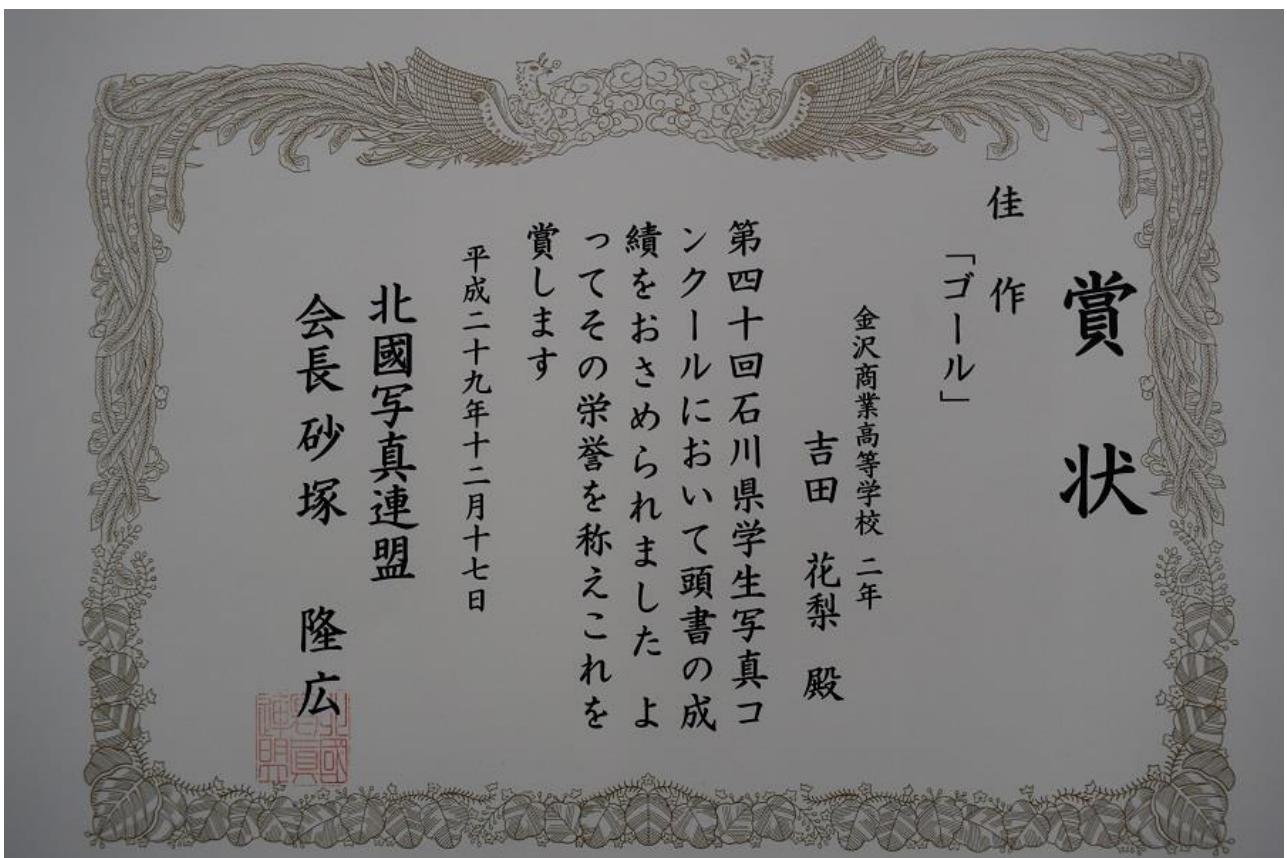 賞状
佳作
「ゴール」
金沢商業高等学校 二年
吉田 花梨 殿
第四十回石川県学生写真コ
ンクールにおいて頭書の成
績をおさめられました よ
ってその栄誉を称えこれを
賞します
平成二十九年十二月十七日
北國写真連盟
会長 砂塚 隆広
北國写真連盟